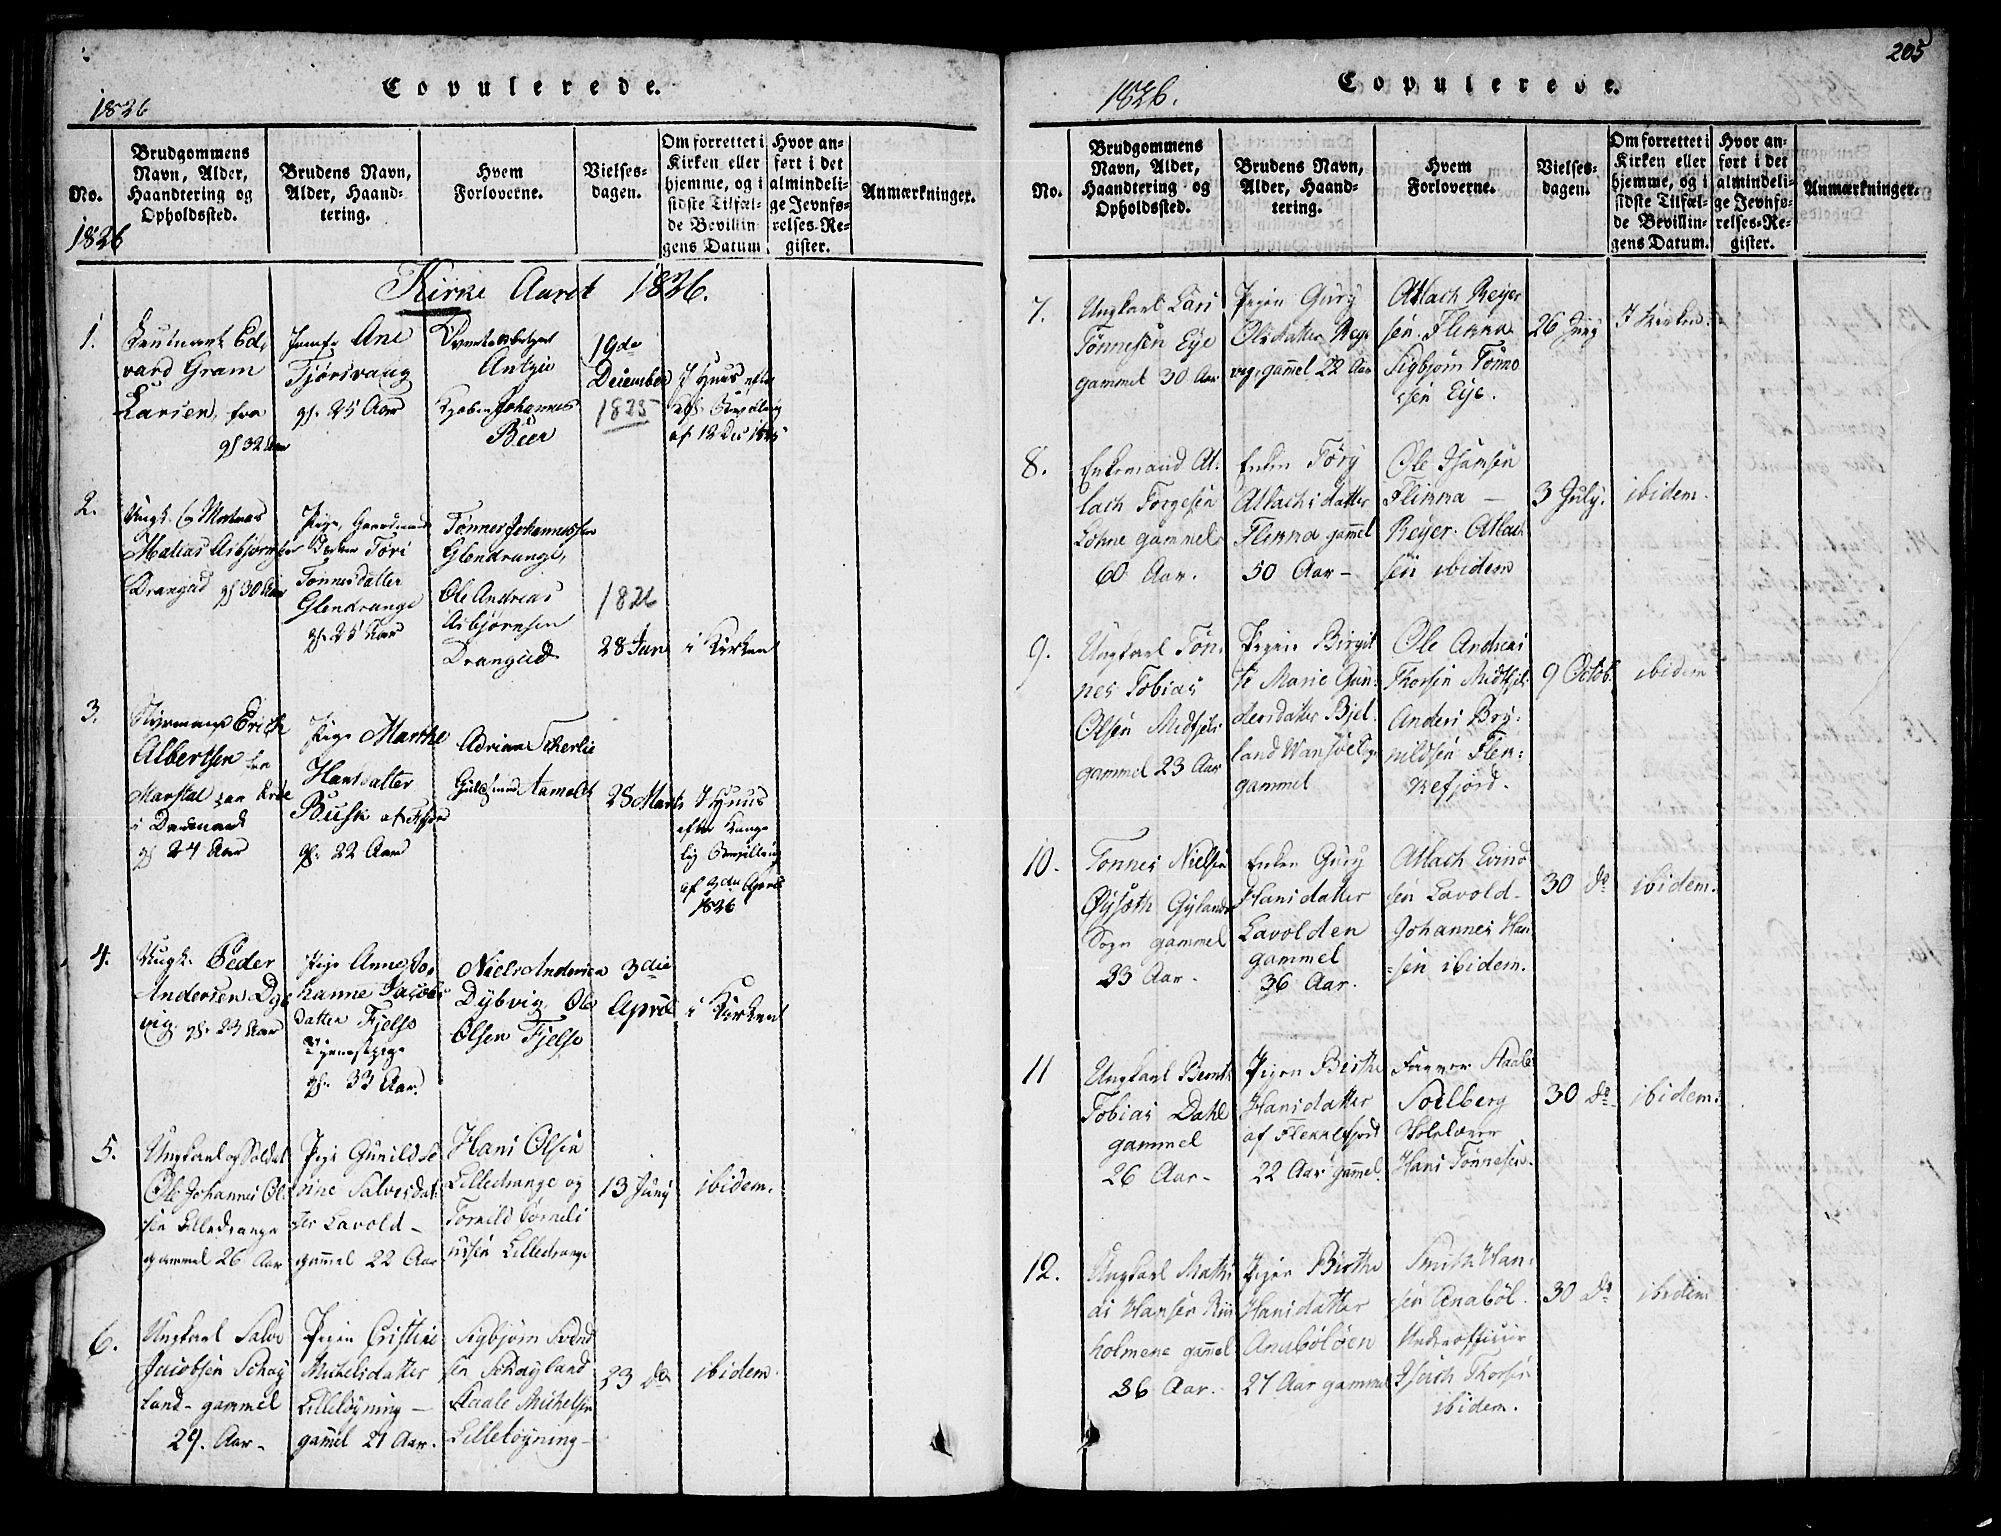 Copulerede.
1826
No.
Brudgommens Navn, Alder, Haandtering og Opholdssted.
Brudens Navn, Alder, Haandtering.
Hvem Forloverne.
Vielsesdagen.
Om forrettet i Kirken eller hjemme, og i sidste Tilfælde Bevillingens Datum
Hvor anført i det almindelige Jevnførelses-Register.
Anmærkninger.
1826
Kirke Aaret 1826.
1.
Ed-
vard Gram
Larsen, fra
32 Aar
Jomfr Ane
Fjørsvaag
25 Aar
Johannes
Beer
19de
December
1825
I Huus efter
af 12 Dec 1825
2.
Ungk. og Matros
Matias Asbjørnsen
Drangeid 30 Aar
Pige,
Tori
Tønnesdatter
Glendrange
25 Aar
Tønnes Johannessen
Glendrange,
Ole Andreas
Asbjørnsen
Drangeid
1826
28 Jan
i Kirken
3.
Styrmand Erich
Albertsen fra
Marstal
i Danmark
24 Aar
Pige Marthe
Hansdatter
Busk
22 Aar
Adrian
Aamodt
28 Marts
I Huus
efter Konge-
lig Bevilling
af
1826
4.
Ungk. Peder
Andersen Dyb-
vig. 23 Aar
Pige Anne Jo-
hanne Jacobs
datter Fjelse
Tjenestpige
33 Aar.
Niels Andersen
Dybvig, Ole
Olsen Fjelse
3die
April
i Kirken
5.
Ungkarl og Soldat
Ole Johannes Ol-
sen Lilledrange
gammel 26 Aar
Pige Gunild
Salvesdat-
ter Lavold -
gammel 22 Aar
Hans Olsen
Lilledrange og
Torkild Corneli
ussen Lilledrange
13 Juny
ibidem.
6.
Ungkarl Salve
Jacobsen Schøy
land - gammel
29. Aar -
Pigen Cristine
Michelsdatter
Lilleløyning -
gammel 21 Aar.
Sigbjørn Svend
sen Schøyland
Staale Michelsen
Lilleløyning -
23 do
ibidem.
205
Copulerede.
1826.
No.
Brudgommens Navn, Alder, Haandtering og Opholdssted.
Brudens Navn, Alder, Haandtering.
Hvem Forloverne.
Vielsesdagen.
Om forrettet i Kirken eller hjemme, og i sidste Tilfælde Bevillingens Datum.
Hvor anført i det almindelige Jevnførelses-Register.
Anmærkninger.
7.
Ungkarl Lars
Tønnesen Eye
gammel 30 Aar
Pigen Gury
Olsdatter Rege
vig, gammel 22 Aar
Atlach Reyer
sen Flikka
Sigbjørn Tønne
sen Eye.
26 Juny
I Kirken.
8.
Enkemand At-
lach Torgesen
Lohne gammel
60 Aar.
Enken Tory
Atlachsdatter
Flikka gammel
50 Aar -
Ole
Flikka -
Reyer Atlach
sen ibidem
3 July.
ibidem.
9.
Ungkarl Tøn-
nes Tobias
Olsen Midtfjels
gammel 23 Aar
Pigen Birgit
te Marie Gun-
dersdatter Bjel-
land
gammel
Ole Andreas
Thorsen Midtfjels
Anders Bry-
nildsen Flek-
kefjord.
9 Octob.
ibidem
10.
Tønnes Nielsen
Øysæth Gylands
Sogn gammel
33 Aar -
Enken Gury
Hansdatter
Lavolden
gammel
36 Aar.
Atlach Evind
sen Lavold -
Johannes Han
sen ibidem.
30 do
ibidem.
11
Ungkarl Bernt
Tobias Dahl
gammel
26 Aar -
Pigen Berthe
Hansdatter
af Flekkefjord
22 Aar gammel.
Farver Staale
Soelberg
Hans Tønnesen.
30 do
ibidem.
12.
Ungkarl Mathi
as Hansen
holmene gammel
36 Aar.
Pigen Birthe
Hansdatter
Anabøløen
27 Aar gammel
Smith Han-
sen Anabøl.
Underofficier
Thorsen
ibidem.
30 do
ibidem